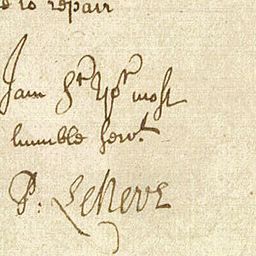 to repair
I am Sr Yor most
humble servt
P: LeNeve